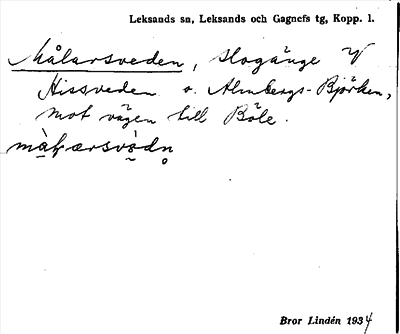 Leksands sn, Leksands och Gagnefs tg, Kopp. l.
Målarsveden, slogänge V
Hissveden o. Almbergs-Björken,
mot vägen till Böle.
Bror Lindén 1934